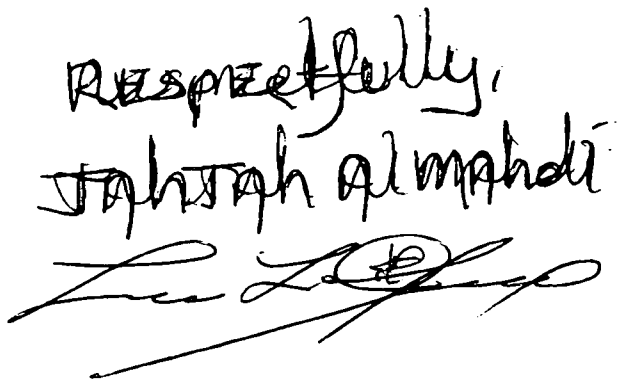 Respectfully,
JahJah Al mahdi